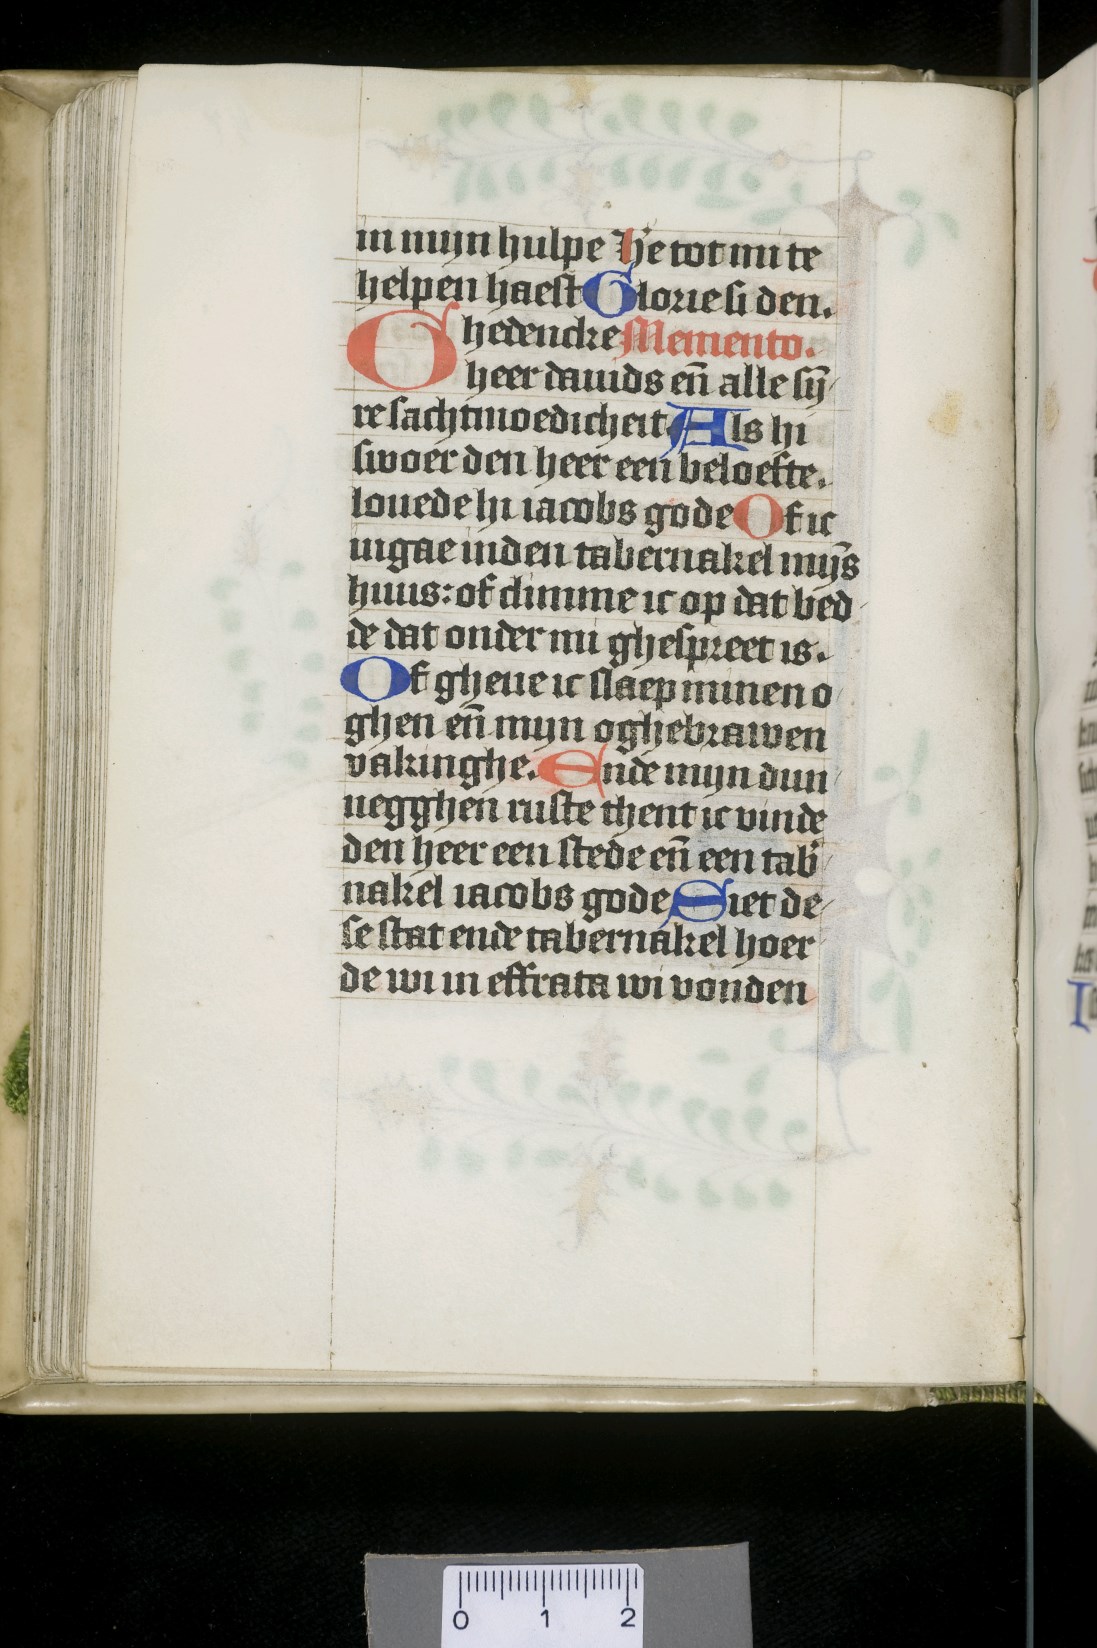 in mijn hulpe He tot mi te
helpen haest Glorie si den.
Ghedencke Memento.
heer dauids en̄ alle sy̅
re sachtmoedicheit Als hi
swoer den heer een beloefte.
louede hi iacobs gode Of ic
ingae inden tabernakel mijs̅
huus: of climme ic op dat bed
de dat onder mi ghespreet is.
Of gheue ic slaep minen o
ghen en̄ mijn oghebrawen
vakinghe. Ende mijn dun
negghen ruste thent ic vinde
den heer een stede en̄ een tab̕
nakel iacobs gode Siet de
se stat ende tabernakel hoer
de wi in effrata wi vonden
0 1 2